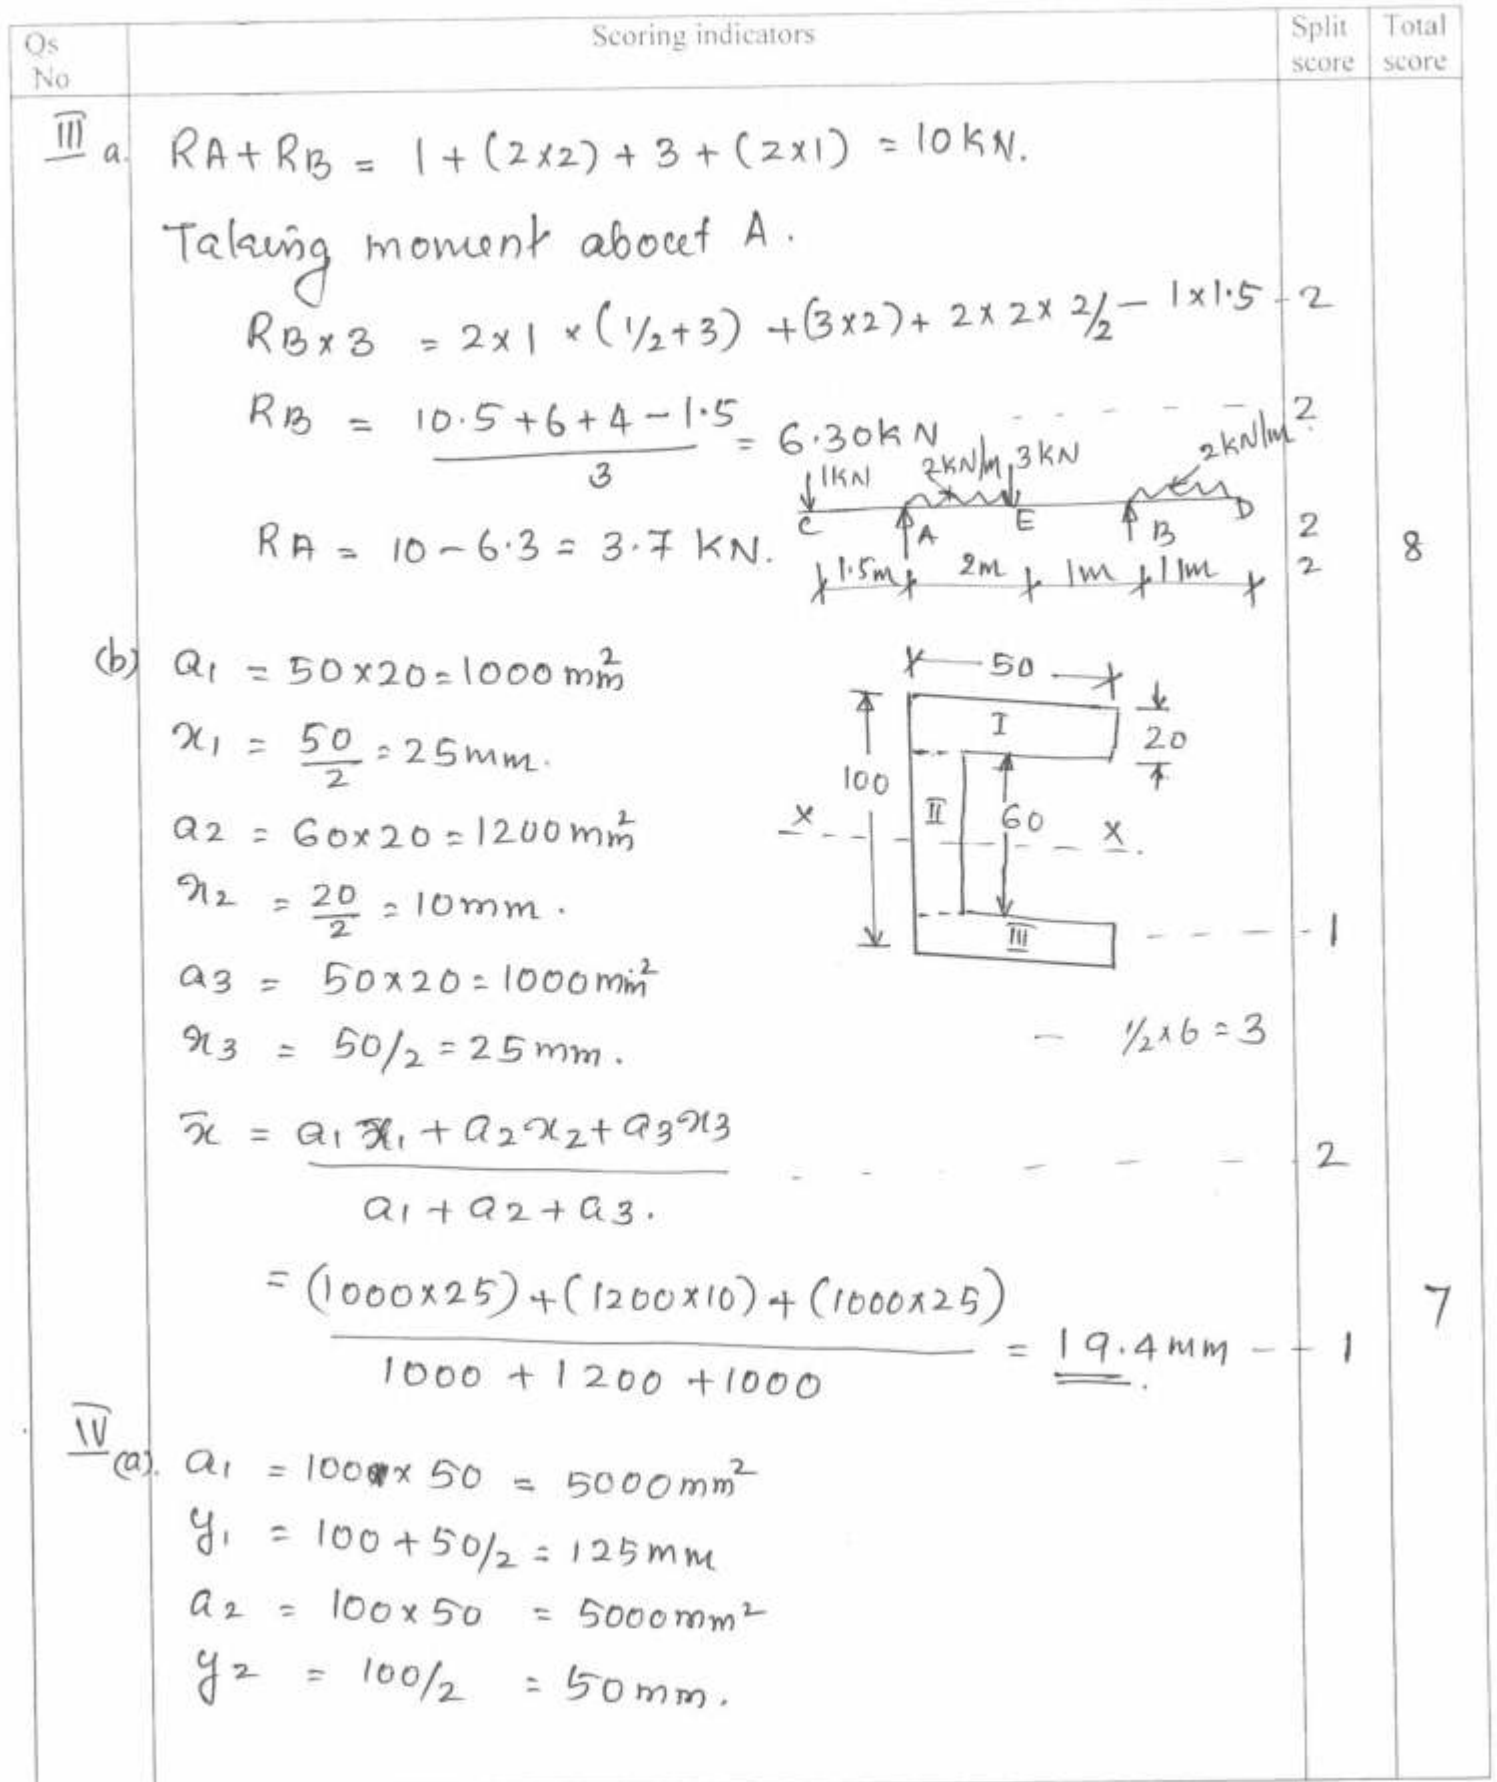 Qs No
Scoring indicators
Split score
Total score
III a. RA + RB = 1 + (2×2) + 3 + (2×1) = 10 KN.
Taking moment about A.
RB × 3 = 2×1 × (1/2+3) + (3×2) + 2×2× 2/2 – 1×1.5 - 2
RB = (10.5 + 6 + 4 – 1.5)/3 = 6.30 KN - - - - - 2
1KN 2KN/m 3KN 2KN/m
C A E B D
1.5m 2m 1m 1m
RA = 10 – 6.3 = 3.7 KN. 2
2 8
(b) a1 = 50×20 = 1000 mm²
50
x1 = 50/2 = 25mm.
I 20
100
a2 = 60×20 = 1200 mm²
X II 60 X
x2 = 20/2 = 10mm.
III - - - - 1
a3 = 50×20 = 1000 mm²
x3 = 50/2 = 25mm. – 1/2×6 = 3
x̄ = (a1 x1 + a2 x2 + a3 x3)/(a1 + a2 + a3). - - - - - 2
= ((1000×25) + (1200×10) + (1000×25))/(1000 + 1200 + 1000) = 19.4mm - - 1 7
IV (a). a1 = 100 × 50 = 5000 mm²
y1 = 100 + 50/2 = 125mm
a2 = 100×50 = 5000 mm²
y2 = 100/2 = 50mm.